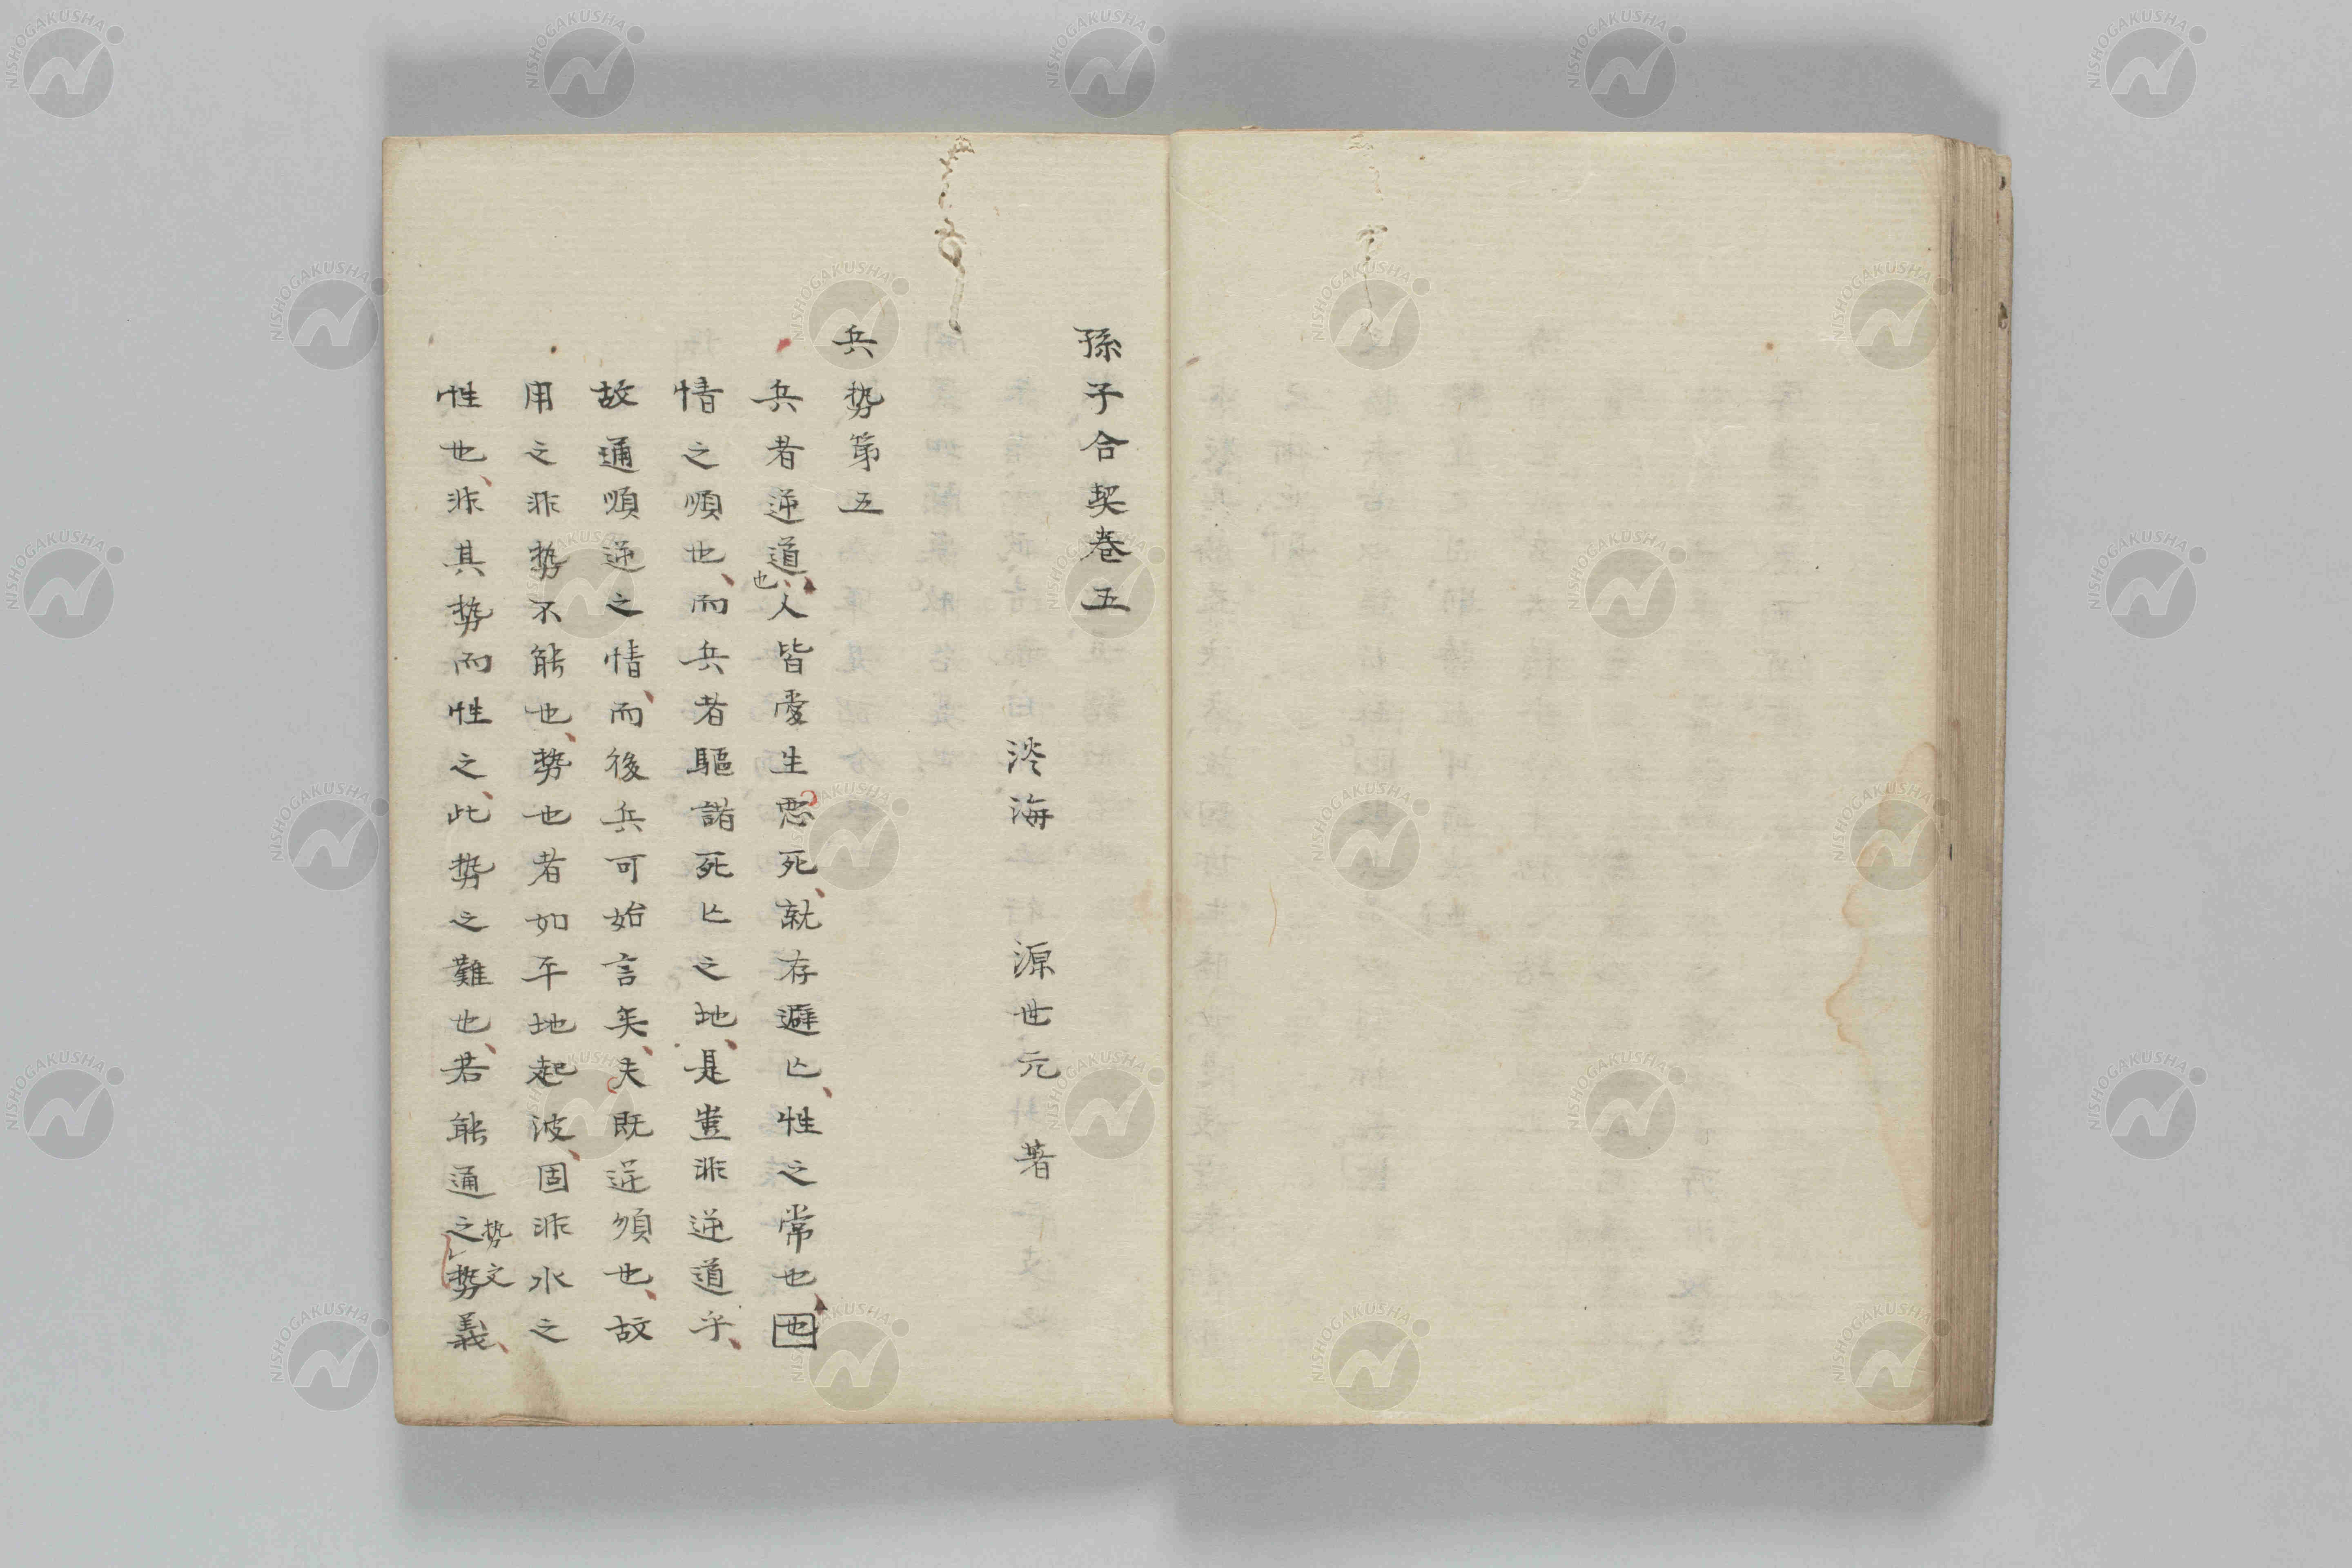 孫子合契卷五
淡海 源世元 著
兵势第五
兵者逆道也人皆愛生惡死就存避亡性之常也也
情之順也而兵者驅諸死亡之地是豈非逆道乎
故通順逆之情而後兵可始言矣夫既逆順也故
用之非势不能也势也者如平地起波固非水之
性也非其势而性之此势之難也若能通之势義
势文
NISHOGAKUSHA